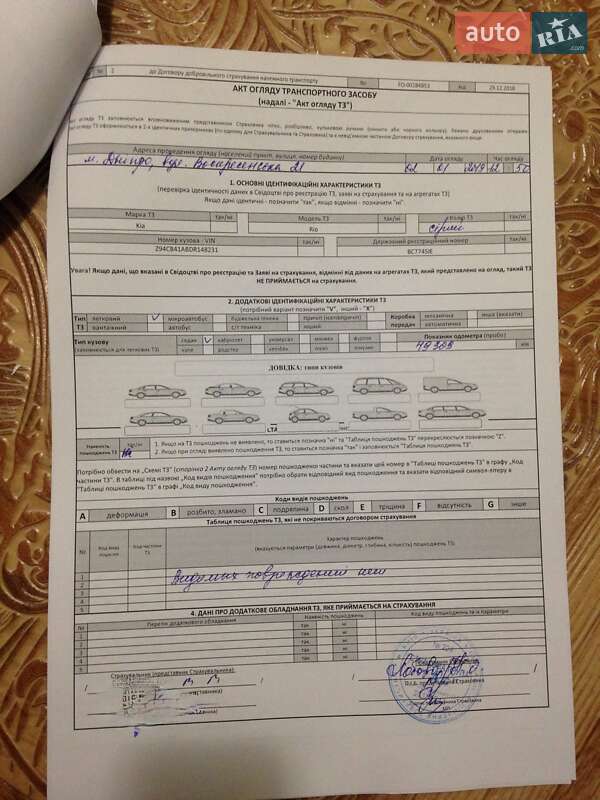 auto RIA .com
№ 1 до Договору добровільного страхування наземного транспорту № від 29.12.2018
АКТ ОГЛЯДУ ТРАНСПОРТНОГО ЗАСОБУ
(надалі - "Акт огляду ТЗ")
Адреса проведення огляду (населений пункт, вулиця, номер будинку) Дата огляду Час огляду
м. Дніпро, вул. Воскресенська 21
1. ОСНОВНІ ІДЕНТИФІКАЦІЙНІ ХАРАКТЕРИСТИКИ ТЗ
(перевірка ідентичності даних в Свідоцтві про реєстрацію ТЗ, заяві на страхування та на агрегатах ТЗ)
Якщо дані ідентичні - позначити "так", якщо відмінні - позначити "ні"
Марка ТЗ так/ні Модель ТЗ так/ні Колір ТЗ так/ні
Kia Rio сірий
Номер кузова - VIN так/ні Державний реєстраційний номер так/ні
Z94CB41ABDR148231 BC7745IE
Увага! Якщо дані, що вказані в Свідоцтві про реєстрацію та Заяві на страхування, відмінні від даних на агрегатах ТЗ, який представлено на огляд, такий ТЗ
НЕ ПРИЙМАЄТЬСЯ на страхування.
2. ДОДАТКОВІ ІДЕНТИФІКАЦІЙНІ ХАРАКТЕРИСТИКИ ТЗ
(потрібний варіант позначити "V", інший - "X")
Тип легковий V мікроавтобус будівельна техніка причіп (напівпричіп) Коробка механічна інша (вказати)
ТЗ вантажний автобус с/г техніка інший передач автоматична
Тип кузову седан V кабріолет універсал мінівен фургон Показання одометра (пробіг)
(заповнюється для легкових ТЗ) купе родстер хетчбек пікап лімузин км
ДОВІДКА: типи кузовів
Наявність пошкоджень ТЗ так/ні 1. Якщо на ТЗ пошкоджень не виявлено, то ставиться позначка "ні" та "Таблиця пошкоджень ТЗ" перекреслюється позначкою "Z".
2. Якщо при огляді виявлено пошкодження ТЗ, то ставиться позначка "так" і заповнюється "Таблиця пошкоджень ТЗ".
Потрібно обвести на „Схемі ТЗ" (сторона 2 Акту огляду ТЗ) номер пошкодженої частини та вказати цей номер в "Таблиці пошкоджень ТЗ" в графу „Код
частини ТЗ". В таблиці під назвою „Код видів пошкодження" потрібно обрати відповідний вид пошкодження та вказати відповідний символ-літеру в
"Таблиці пошкоджень ТЗ" в графу „Код виду пошкодження".
Коди видів пошкоджень
A деформація B розбито, зламано C подряпина D скол E тріщина F відсутність G інше
Таблиця пошкоджень ТЗ, які не покриваються договором страхування
№ Код виду пошк-ня Код частини ТЗ Характер пошкоджень
(вказуються параметри (довжина, діаметр, глибина, кількість) пошкоджень ТЗ)
1
2 Видимых повреждений нет
3
4
5
4. ДАНІ ПРО ДОДАТКОВЕ ОБЛАДНАННЯ ТЗ, ЯКЕ ПРИЙМАЄТЬСЯ НА СТРАХУВАННЯ
№ Перелік додаткового обладнання Наявність пошкоджень Код виду пошкоджень та їх параметри
1 так ні
2 так ні
3 так ні
4 так ні
5 так ні
Страхувальник (представник Страхувальника):